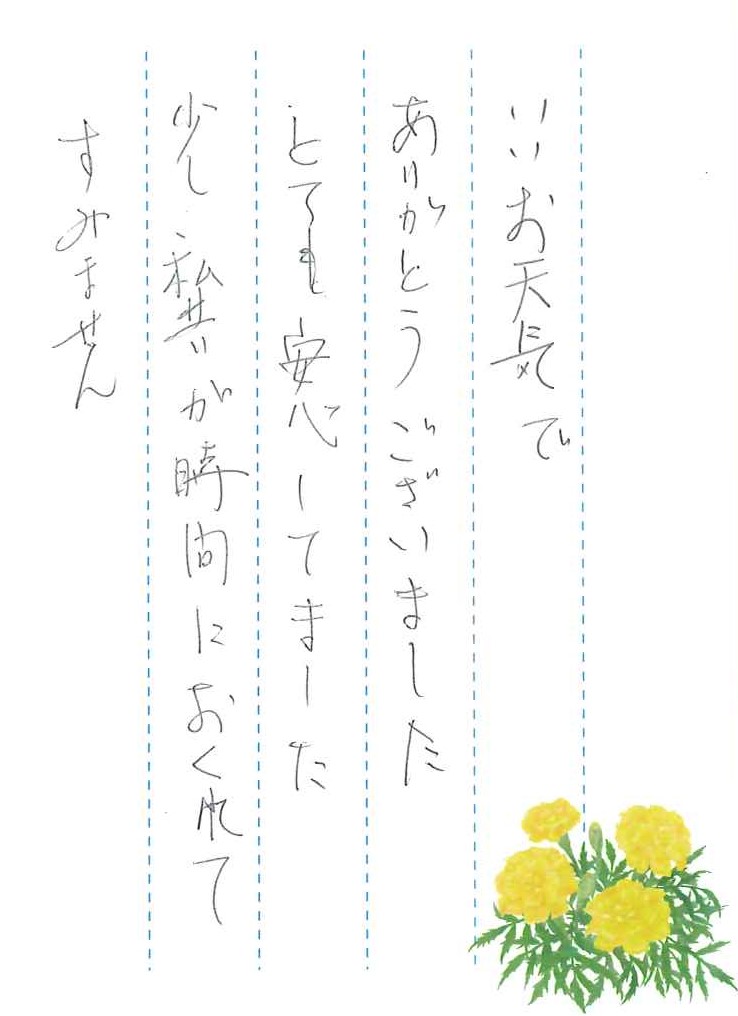 いいお天気で
ありがとうございました
とても安心してました
少し私共が時間におくれて
すみません